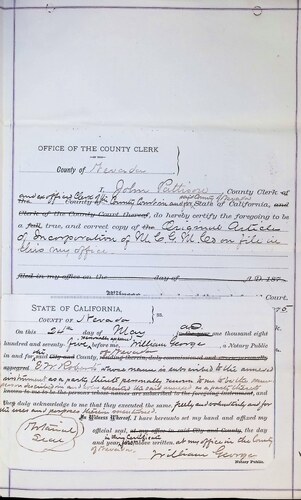 OFFICE OF THE COUNTY CLERK
County of Nevada
I, John Pattison, County Clerk of
County of Nevada
and ex officio Clerk of the County Court in and for State of California,
and Clerk of the County Court thereof, do hereby certify the foregoing to be
a full, true, and correct copy of the Original Articles
of Incorporation of M. C. G. M. Co on file in
this my office.
filed in my office on the day of A.D. 187
STATE OF CALIFORNIA,
COUNTY OF Nevada
On this 24th day of May AD one thousand eight
hundred and seventy five, before me, William George a Notary Public
in and for said City and County, of Nevada
appeared E. W. Roberts whose name is subscribed to the annexed
instrument as a party thereto personally known to me to be the same
known to me to be the persons whose names are subscribed to the foregoing instrument, and
they duly acknowledge to me that they executed the same, freely and voluntarily and for
the uses and purposes therein mentioned
In Witness Whereof, I have hereunto set my hand and affixed my
official seal, at my office said City and County, the day
and year in this Certificate first above written at my office in the County
of Nevada.
Notarial
Seal
William George
Notary Public.